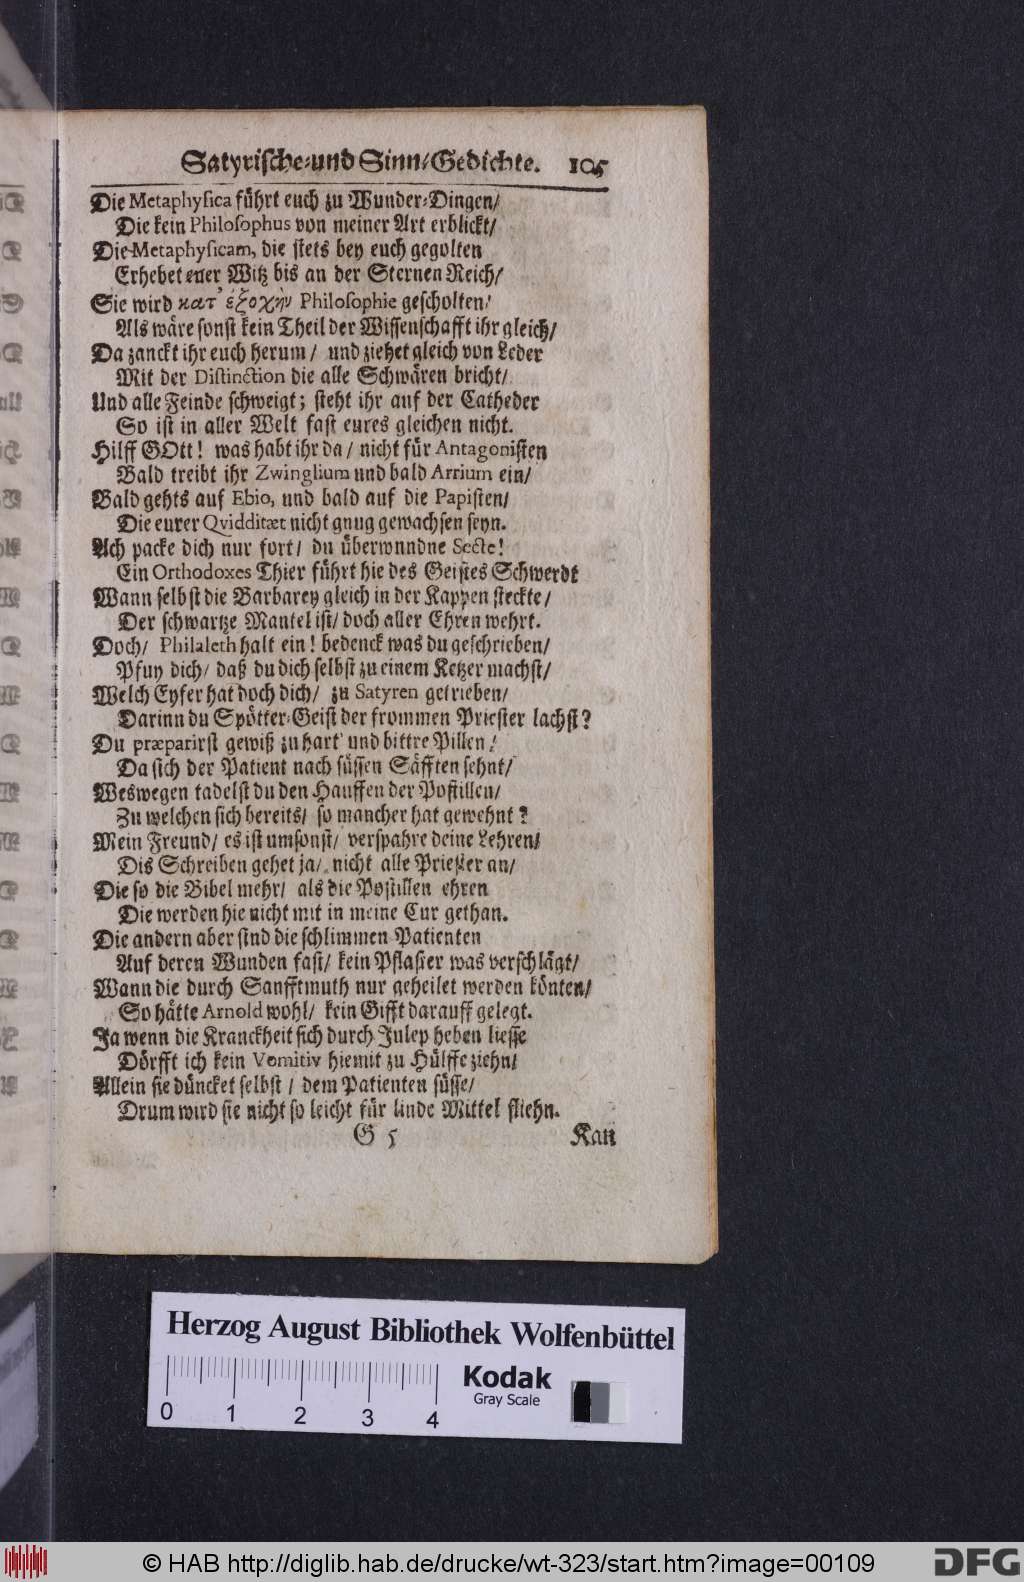 Satyrische-und Sinn-Gedichte. 105
Die Metaphysica führt euch zu Wunder-Dingen/
Die kein Philosophus von meiner Art erblickt/
Die-Metaphysicam, die stets bey euch gegolten
Erhebet euer Witz bis an der Sternen Reich/
Sie wird κατ' ἐξοχὴν Philosophie gescholten/
Als wäre sonst kein Theil der Wissenschafft ihr gleich/
Da zanckt ihr euch herum/ und ziehet gleich von Leder
Mit der Distinction die alle Schwären bricht/
Und alle Feinde schweigt; steht ihr auf der Catheder
So ist in aller Welt fast eures gleichen nicht.
Hilff GOtt! was habt ihr da/ nicht für Antagonisten
Bald treibt ihr Zwinglium und bald Arrium ein/
Bald gehts auf Ebio, und bald auf die Papisten/
Die eurer Qvidditæt nicht gnug gewachsen seyn.
Ach packe dich nur fort/ du überwundne Secte!
Ein Orthodoxes Thier führt hie des Geistes Schwerdt
Wann selbst die Barbarey gleich in der Kappen steckte/
Der schwartze Mantel ist/ doch aller Ehren wehrt.
Doch/ Philaleth halt ein! bedenck was du geschrieben/
Pfuy dich/ daß du dich selbst zu einem Ketzer machst/
Welch Eyfer hat doch dich/ zu Satyren getrieben/
Darinn du Spötter-Geist der frommen Priester lachst?
Du præparirst gewiß zu hart und bittre Pillen/
Da sich der Patient nach süssen Säfften sehnt/
Weswegen tadelst du den Hauffen der Postillen/
Zu welchen sich bereits/ so mancher hat gewehnt?
Mein Freund/ es ist umsonst/ verspahre deine Lehren/
Dis Schreiben gehet ja/ nicht alle Priester an/
Die so die Bibel mehr/ als die Postillen ehren
Die werden hie nicht mit in meine Cur gethan.
Die andern aber sind die schlimmen Patienten
Auf deren Wunden fast/ kein Pflaster was verschlägt/
Wann die durch Sanfftmuth nur geheilet werden könten/
So hätte Arnold wohl/ kein Gifft darauff gelegt.
Ja wenn die Kranckheit sich durch Julep heben liesse
Dörfft ich kein Vomitiv hiemit zu Hülffe ziehn/
Allein sie düncket selbst/ dem Patienten süsse/
Drum wird sie nicht so leicht für linde Mittel fliehn.
G 5 Kan
Herzog August Bibliothek Wolfenbüttel
Kodak
Gray Scale
0 1 2 3 4
© HAB http://diglib.hab.de/drucke/wt-323/start.htm?image=00109
DFG